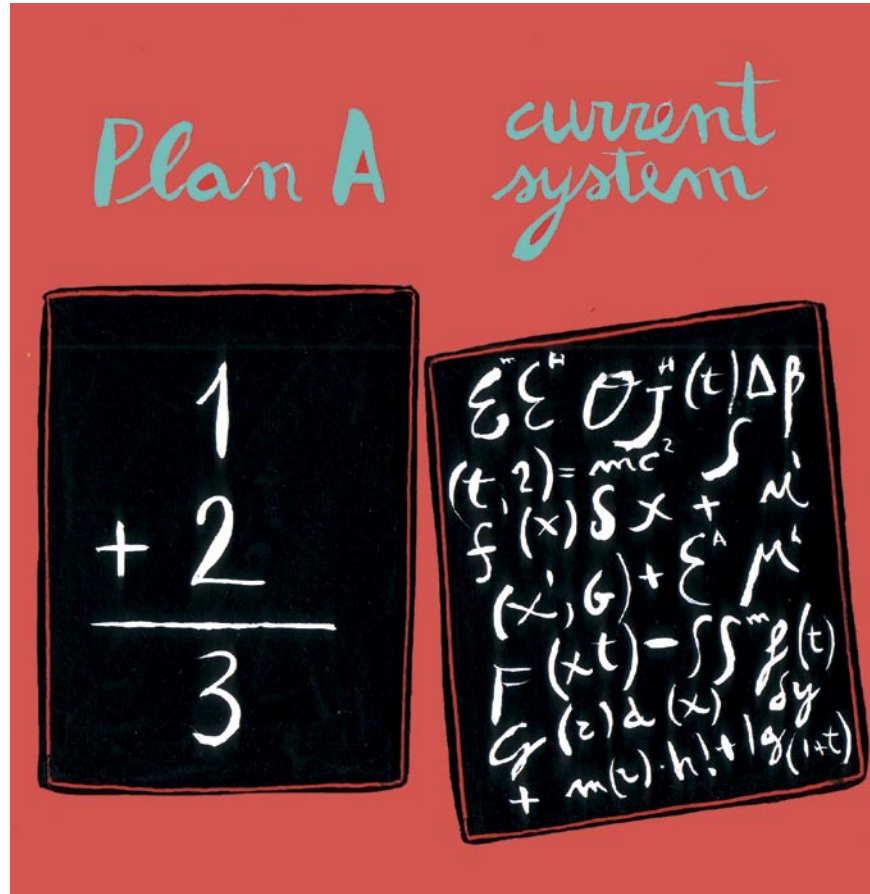 Plan A
current
system
1
+ 2
3
Ɛᵐ Ɛᴴ O Jᴴ (t) Δ β
(t, 2) = mc² ∫
f'(x) S x + μ'
(x', G) + Ɛᴬ μ'
F (xt) - ∫∫ᵐ f(t)
G (2) d (x) δy
+ m(2) · h! + lg(1+t)